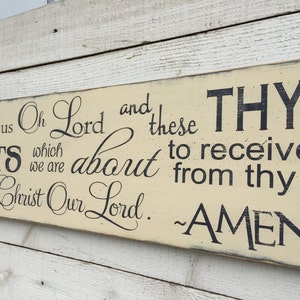 us Oh Lord and these THY
TS which we are about to receive from thy
Christ Our Lord. ~AMEN